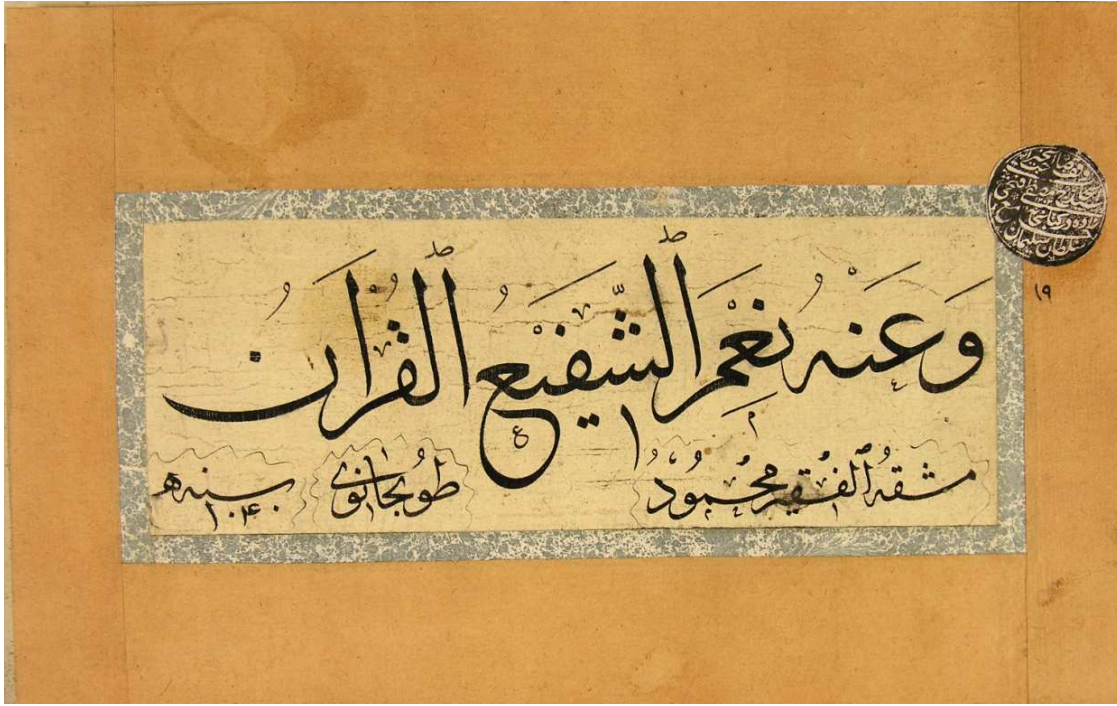 وَعَنْهُ نِعْمَ ٱلشَّفِيعُ ٱلْقُرْاٰنُ
مشقه ٱلفقير محمود طوبخانوى سنه ١٠٤٠ هـ
١٩